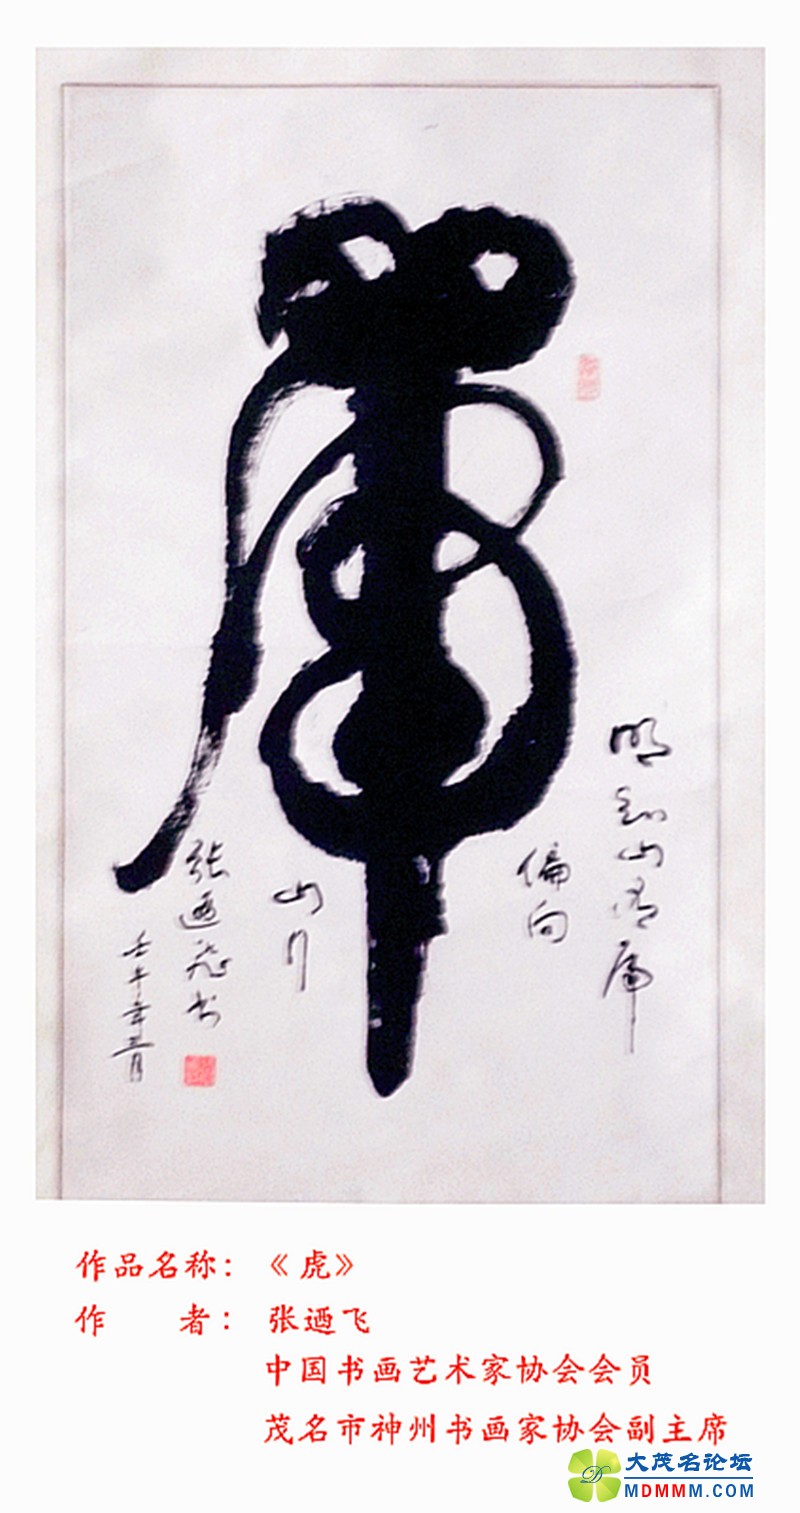 虎
明知山有虎
偏向
山行
张迺飞书
壬午年三月
作品名称：《虎》
作　者：张迺飞
中国书画艺术家协会会员
茂名市神州书画家协会副主席
大茂名论坛
MDMMM.COM